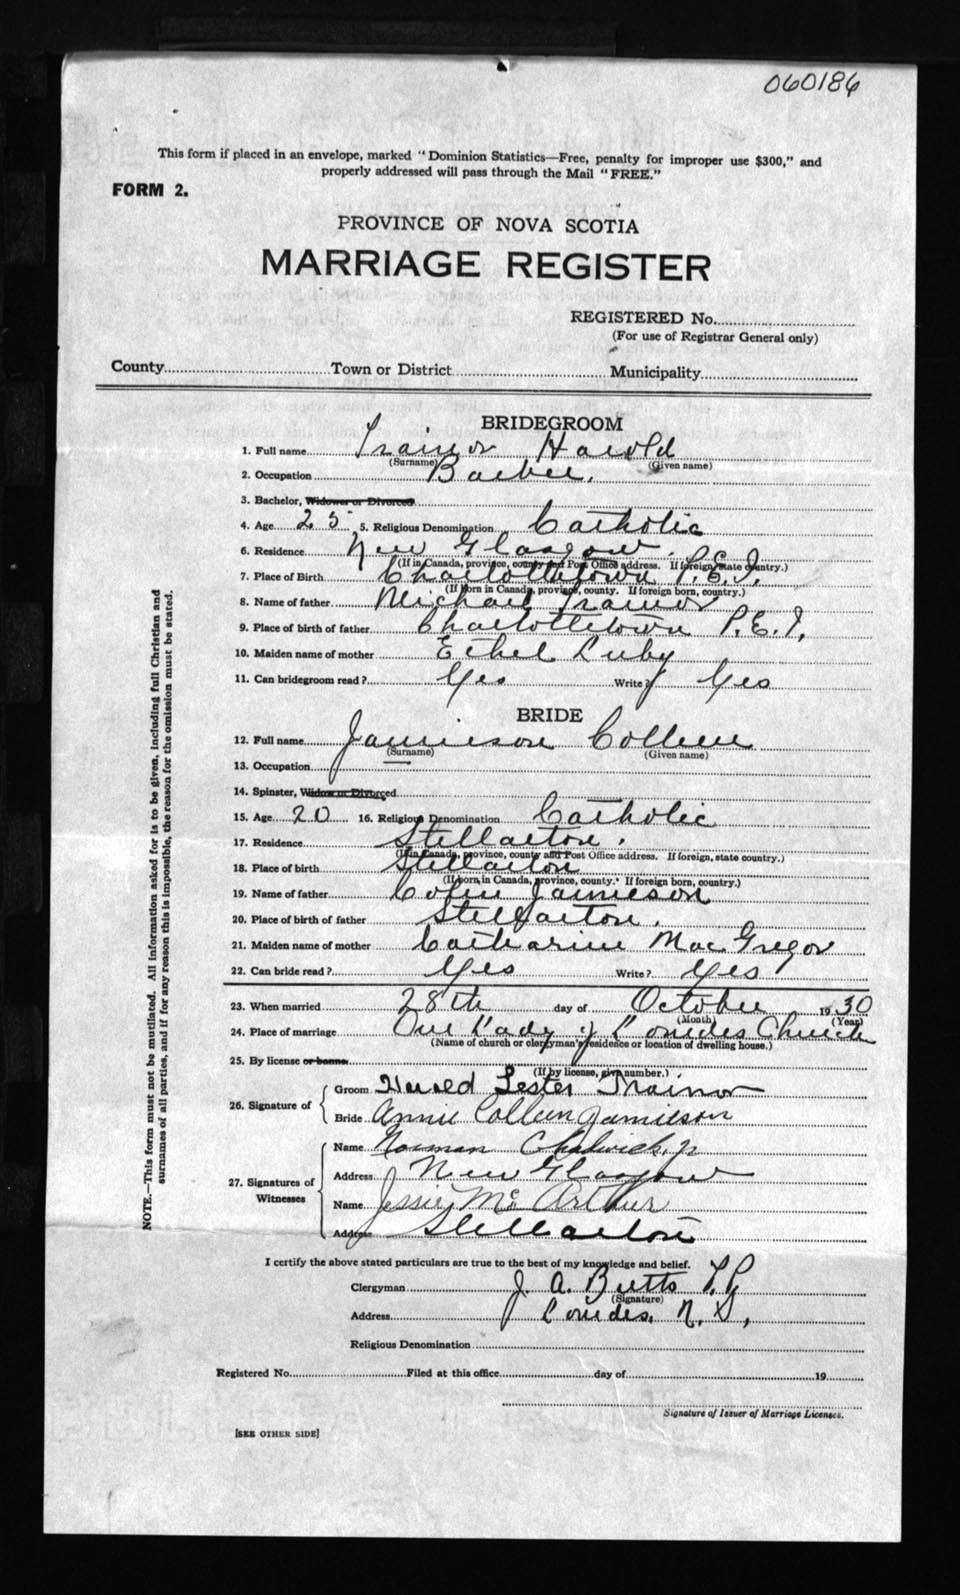 060186
This form if placed in an envelope, marked "Dominion Statistics—Free, penalty for improper use $300," and
properly addressed will pass through the Mail "FREE."
FORM 2.
PROVINCE OF NOVA SCOTIA
MARRIAGE REGISTER
REGISTERED No.
(For use of Registrar General only)
County Town or District Municipality
BRIDEGROOM
1. Full name Trainor Harold
(Surname) (Given name)
2. Occupation Barber.
3. Bachelor, Widower or Divorced
4. Age 25 5. Religious Denomination Catholic
6. Residence New Glasgow.
(If in Canada, province, county and Post Office address. If foreign, state country.)
7. Place of Birth Charlottetown P.E.I.
(If born in Canada, province, county. If foreign born, country.)
8. Name of father Michael Trainor
9. Place of birth of father Charlottetown P.E.I.
10. Maiden name of mother Ethel Luby
11. Can bridegroom read? Yes Write? Yes
BRIDE
12. Full name Jamieson Colleen
(Surname) (Given name)
13. Occupation —
14. Spinster, Widow or Divorced
15. Age 20 16. Religious Denomination Catholic
17. Residence Stellarton.
(If in Canada, province, county and Post Office address. If foreign, state country.)
18. Place of birth Stellarton
(If born in Canada, province, county. If foreign born, country.)
19. Name of father Colin Jamieson
20. Place of birth of father Stellarton.
21. Maiden name of mother Catharine MacGregor
22. Can bride read? Yes Write? Yes
23. When married 28th day of October 1930
(Month) (Year)
24. Place of marriage Our Lady of Lourdes Church
(Name of church or clergyman's residence or location of dwelling house.)
25. By license or banns
(If by license, give number.)
26. Signature of
Groom Harold Lester Trainor
Bride Annie Colleen Jamieson
27. Signatures of Witnesses
Name Norman Chadwick, jr
Address New Glasgow
Name Jessie McArthur
Address Stellarton
I certify the above stated particulars are true to the best of my knowledge and belief.
Clergyman J. A. Butts P.P.
(Signature)
Address Lourdes, N.S.,
Religious Denomination
Registered No. Filed at this office day of 19
Signature of Issuer of Marriage Licenses.
[SEE OTHER SIDE]
NOTE.—This form must not be mutilated. All information asked for is to be given, including full Christian and
surnames of all parties, and if for any reason this is impossible, the reason for the omission must be stated.